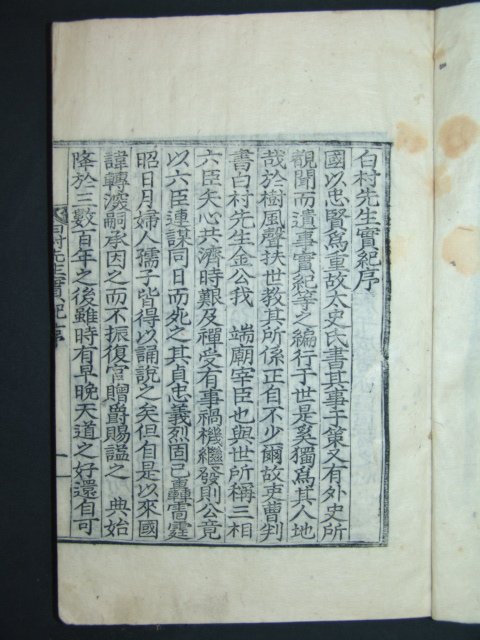 白村先生實紀序
國以忠賢爲重故太史氏書其事于策又有外史所
覩聞而遺事實紀等之編行于世是奚獨爲其人地
哉於樹風聲扶世敎其所係正自不少爾故吏曹判
書白村先生金公我 端廟宰臣也與世所稱三相
六臣矢心共濟時艱及禪受有事禍機繼發則公竟
以六臣連謀同日而死之其貞忠義烈固已轟雷霆
昭日月婦人孺子皆得以誦說之矣但自是以來國
諱轉深嗣承因之而不振復官贈爵賜諡之 典始
降於三數百年之後雖時有早晩天道之好還自可
白村先生實紀序 一